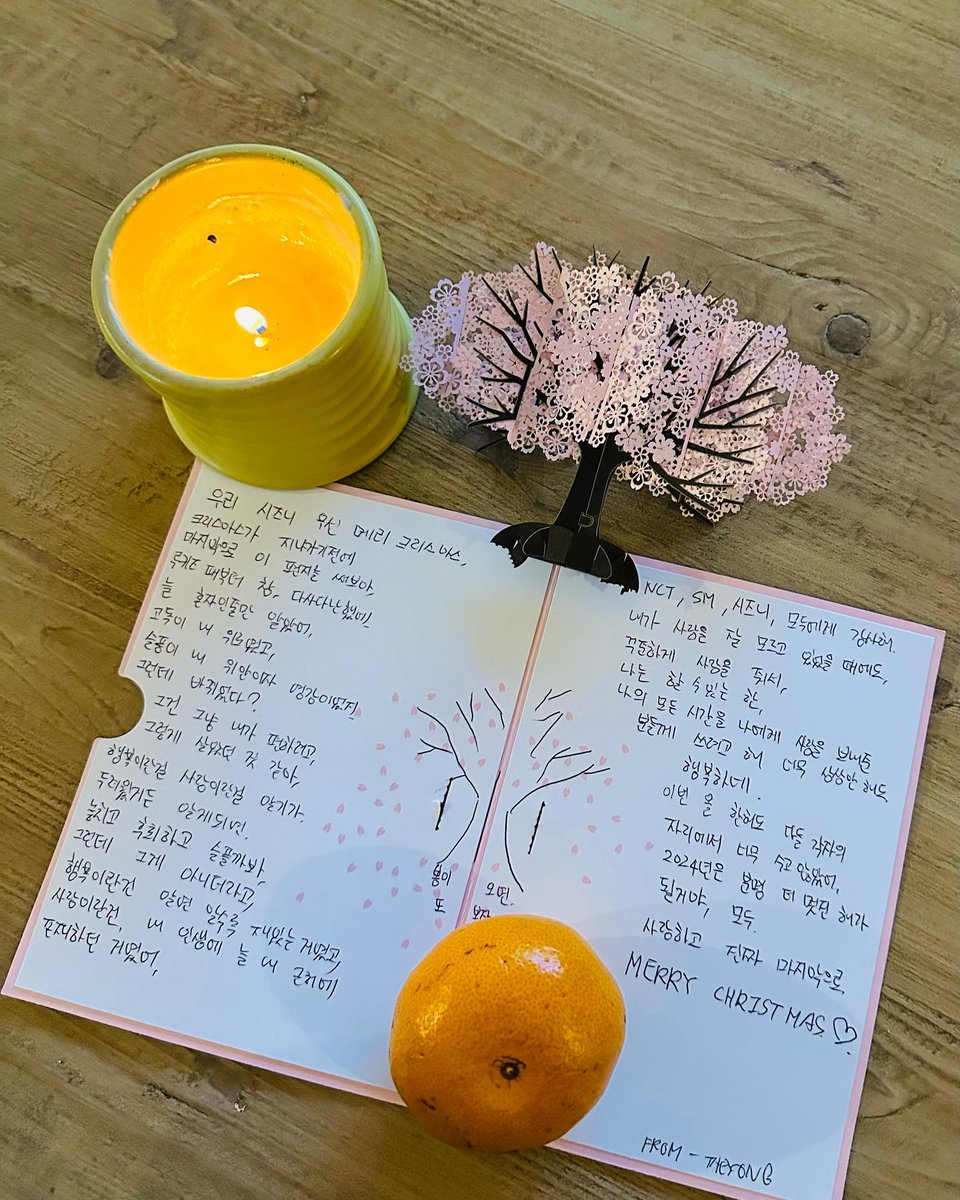 우리 시즈니 우선 메리 크리스마스,
크리스마스가 지나가기전에
마지막으로 이 편지를 써보아,
루키즈 때부터 참, 다사다난했어!
늘 혼자인줄만 알았어,
고독이 내 위로였고,
슬픔이 내 위안이자 영감이였지
그런데 바뀌었다?
그건 그냥 내가 편하려고,
그렇게 살았던 것 같아,
행복이란걸 사랑이란걸 알기가.
두려웠거든 알게되면.
놓치고 후회하고 슬플까봐,
그런데 그게 아니더라고,
행복이란건 알면 알수록 재밌는거였고,
사랑이란건, 내 인생에 늘 내 근처에
존재하던 거였어,
봄이 오면.
또 보자
NCT, SM, 시즈니, 모두에게 감사해.
내가 사랑을 잘 모르고 있었을 때에도,
꾸준하게 사랑을 줘서,
나는 할 수 있는 한,
나의 모든 시간을 나에게 사랑을 보내준
분들께 쓰려고 해 너무 상상만 해도
행복하네.
이번 올 한해도 다들 각자의
자리에서 너무 수고 많았어,
2024년은 분명 더 멋진 해가
될거야, 모두.
사랑하고 진짜 마지막으로
MERRY CHRISTMAS ♡.
FROM - TAEYONG